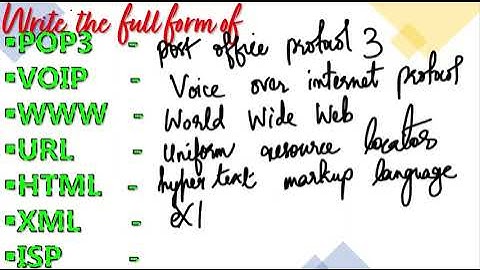 Write the full form of
▪POP3 - post office protocol 3
▪VOIP - Voice over internet protocol
▪WWW - World Wide Web
▪URL - Uniform resource locators
▪HTML - hyper text markup language
▪XML - eXt
▪ISP -